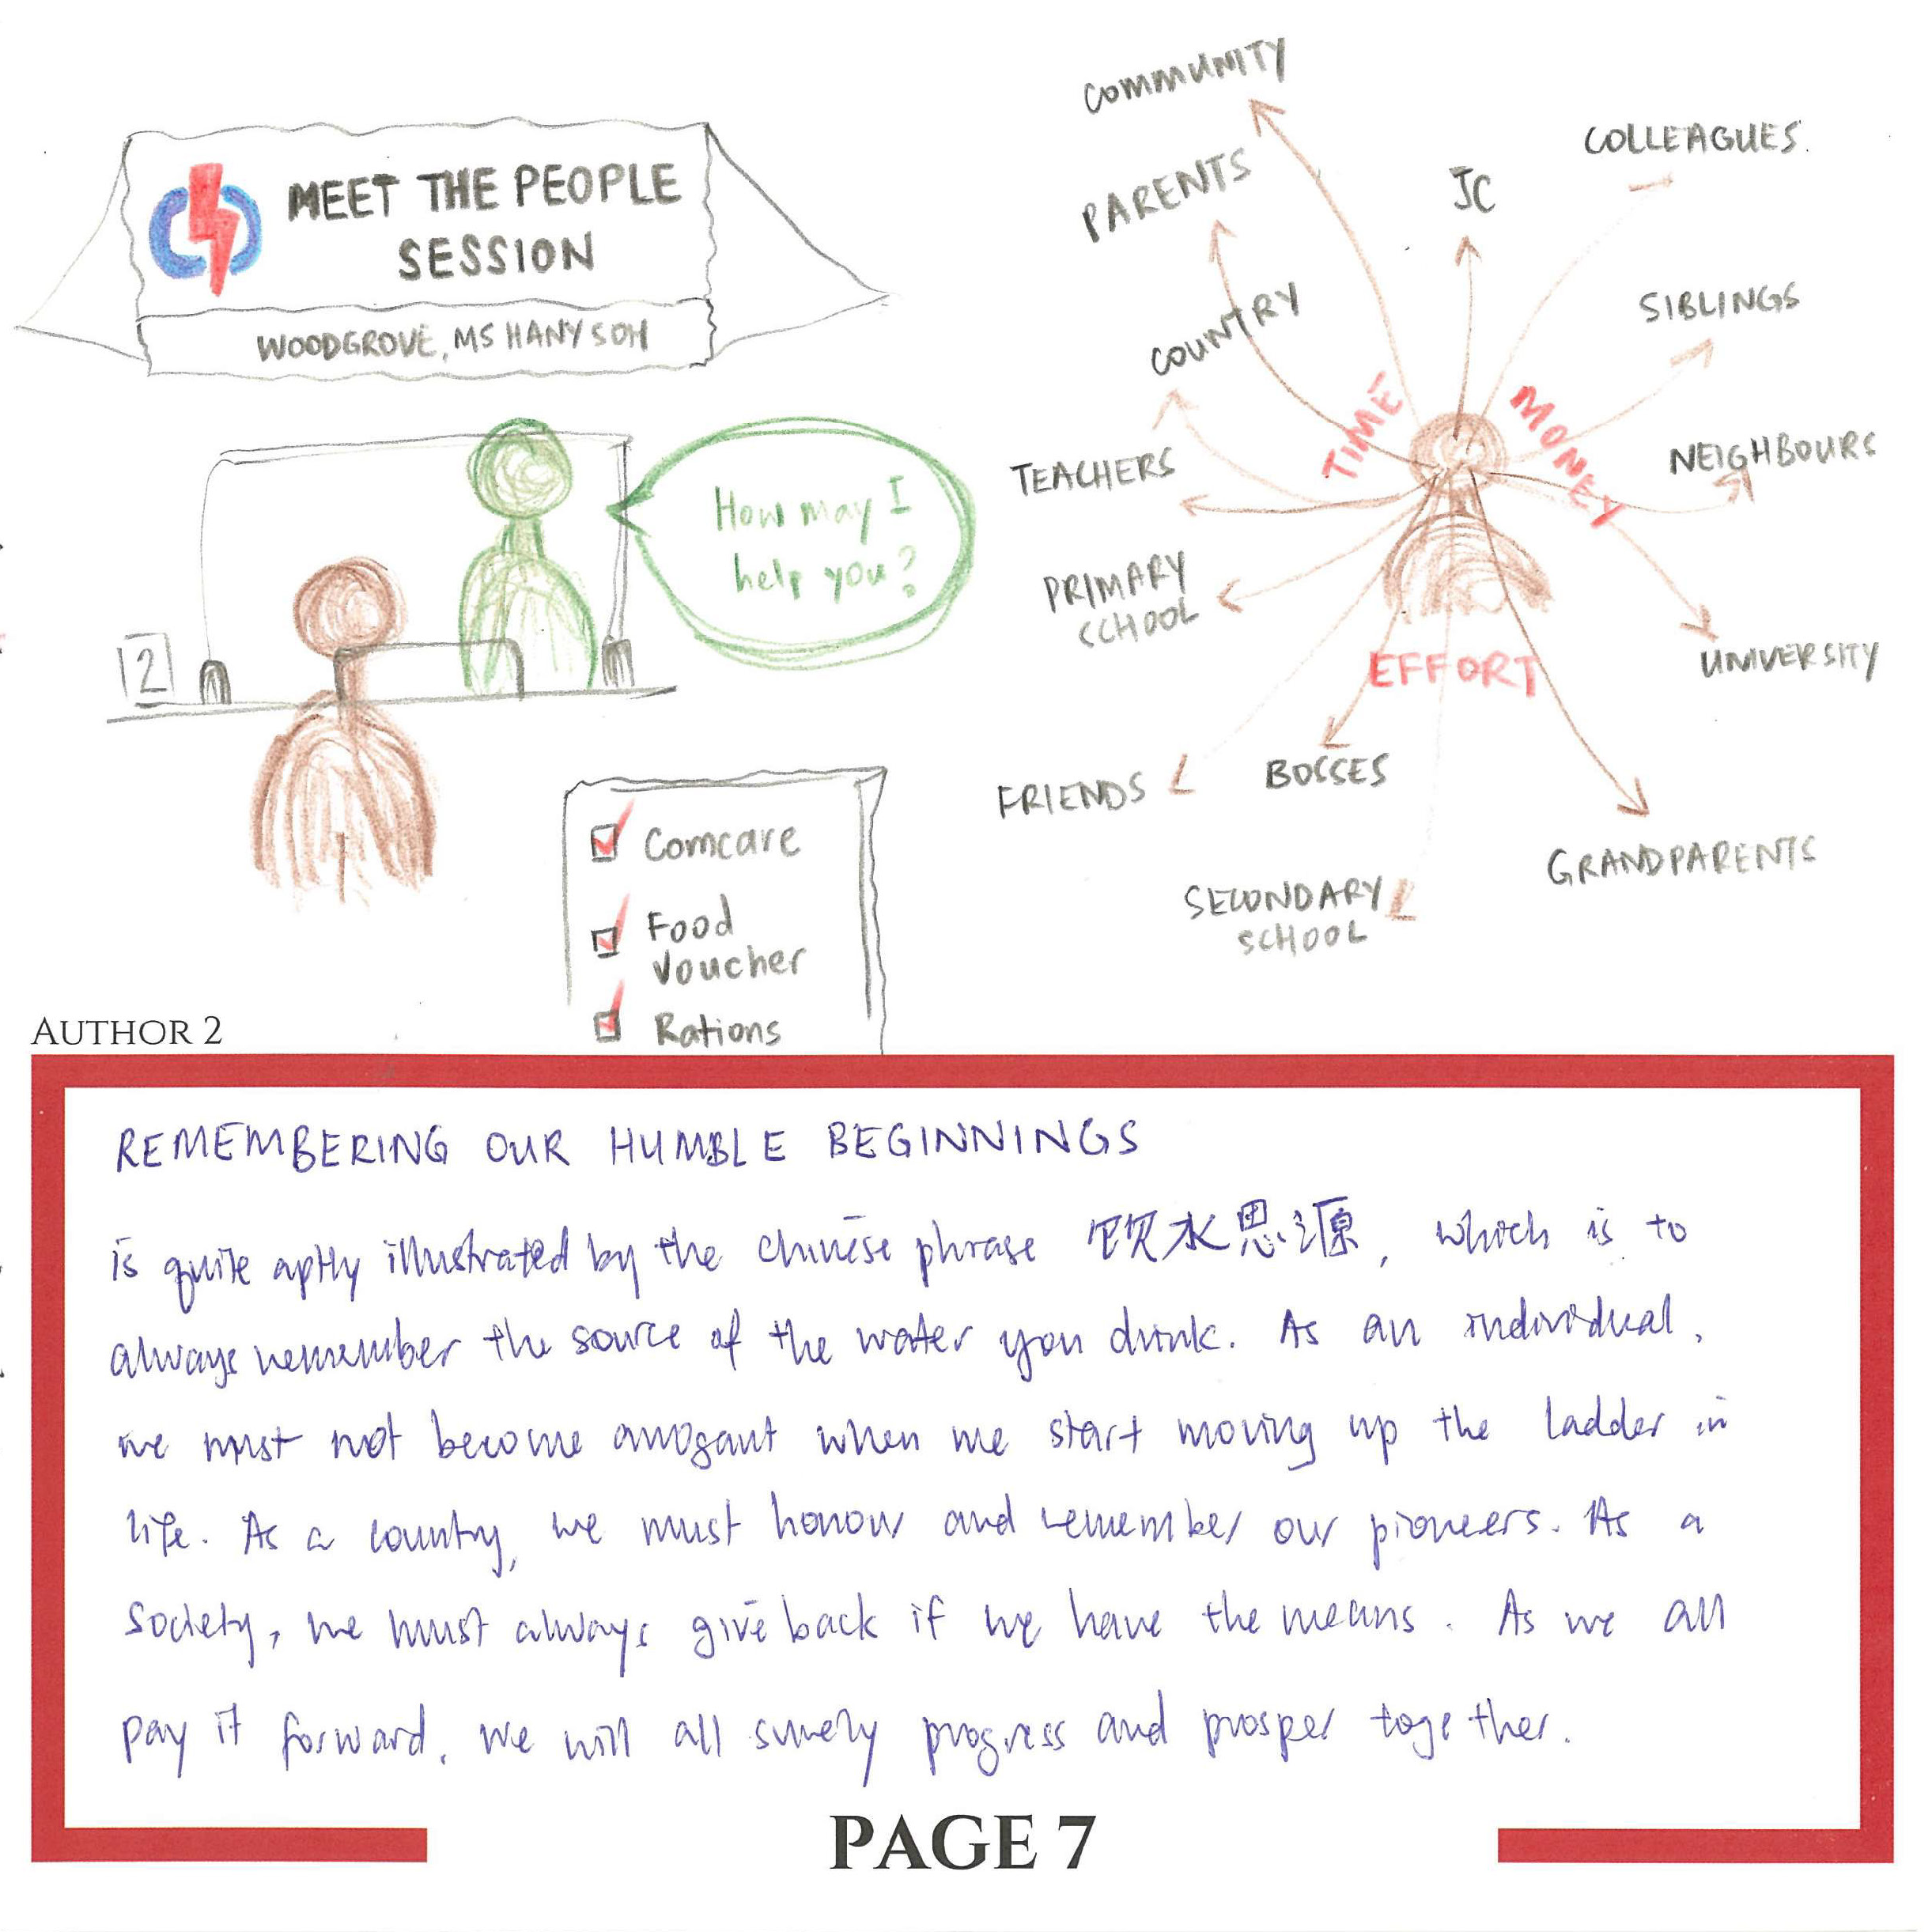 MEET THE PEOPLE
SESSION
WOODGROVE, MS HANY SOH
How may I
help you?
2
Comcare
Food
Voucher
Rations
COMMUNITY
PARENTS
COUNTRY
TEACHERS
PRIMARY
SCHOOL
FRIENDS
BOSSES
SECONDARY
SCHOOL
JC
COLLEAGUES.
SIBLINGS
NEIGHBOURS
UNIVERSITY
GRANDPARENTS
TIME
MONEY
EFFORT
AUTHOR 2
REMEMBERING OUR HUMBLE BEGINNINGS
is quite aptly illustrated by the chinese phrase 饮水思源, which is to
always remember the source of the water you drink. As an individual,
we must not become arrogant when we start moving up the ladder in
life. As a country, we must honour and remember our pioneers. As a
society, we must always give back if we have the means. As we all
pay it forward, we will all surely progress and prosper together.
PAGE 7